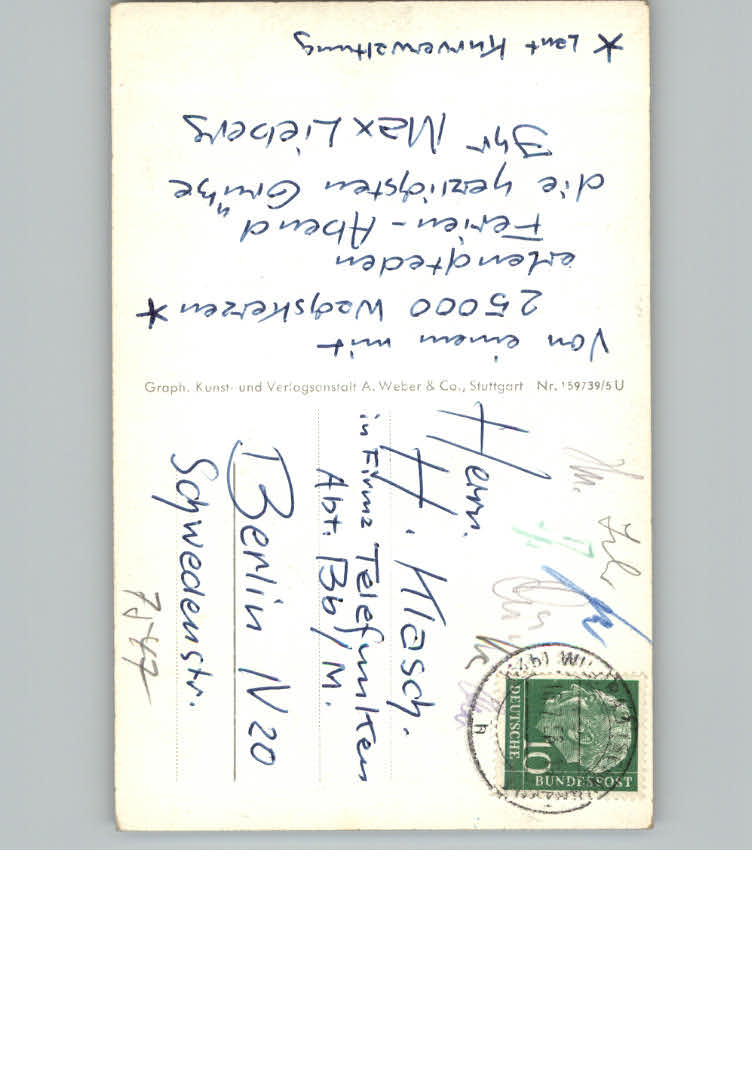 Von einem mit
25000 Wachskerzen *
erleuchteden
Ferien-Abend
die herzlichsten Grüße
Ihr Max Lieberg
* Laut Kurverwaltung
Graph. Kunst- und Verlagsanstalt A. Weber & Co., Stuttgart Nr. 159739/5 U
Herrn.
H. Klasch.
in Firma Telefunken
Abt. Bb/M.
Berlin N 20
Schwedenstr.
7547
DEUTSCHE
10
BUNDESPOST